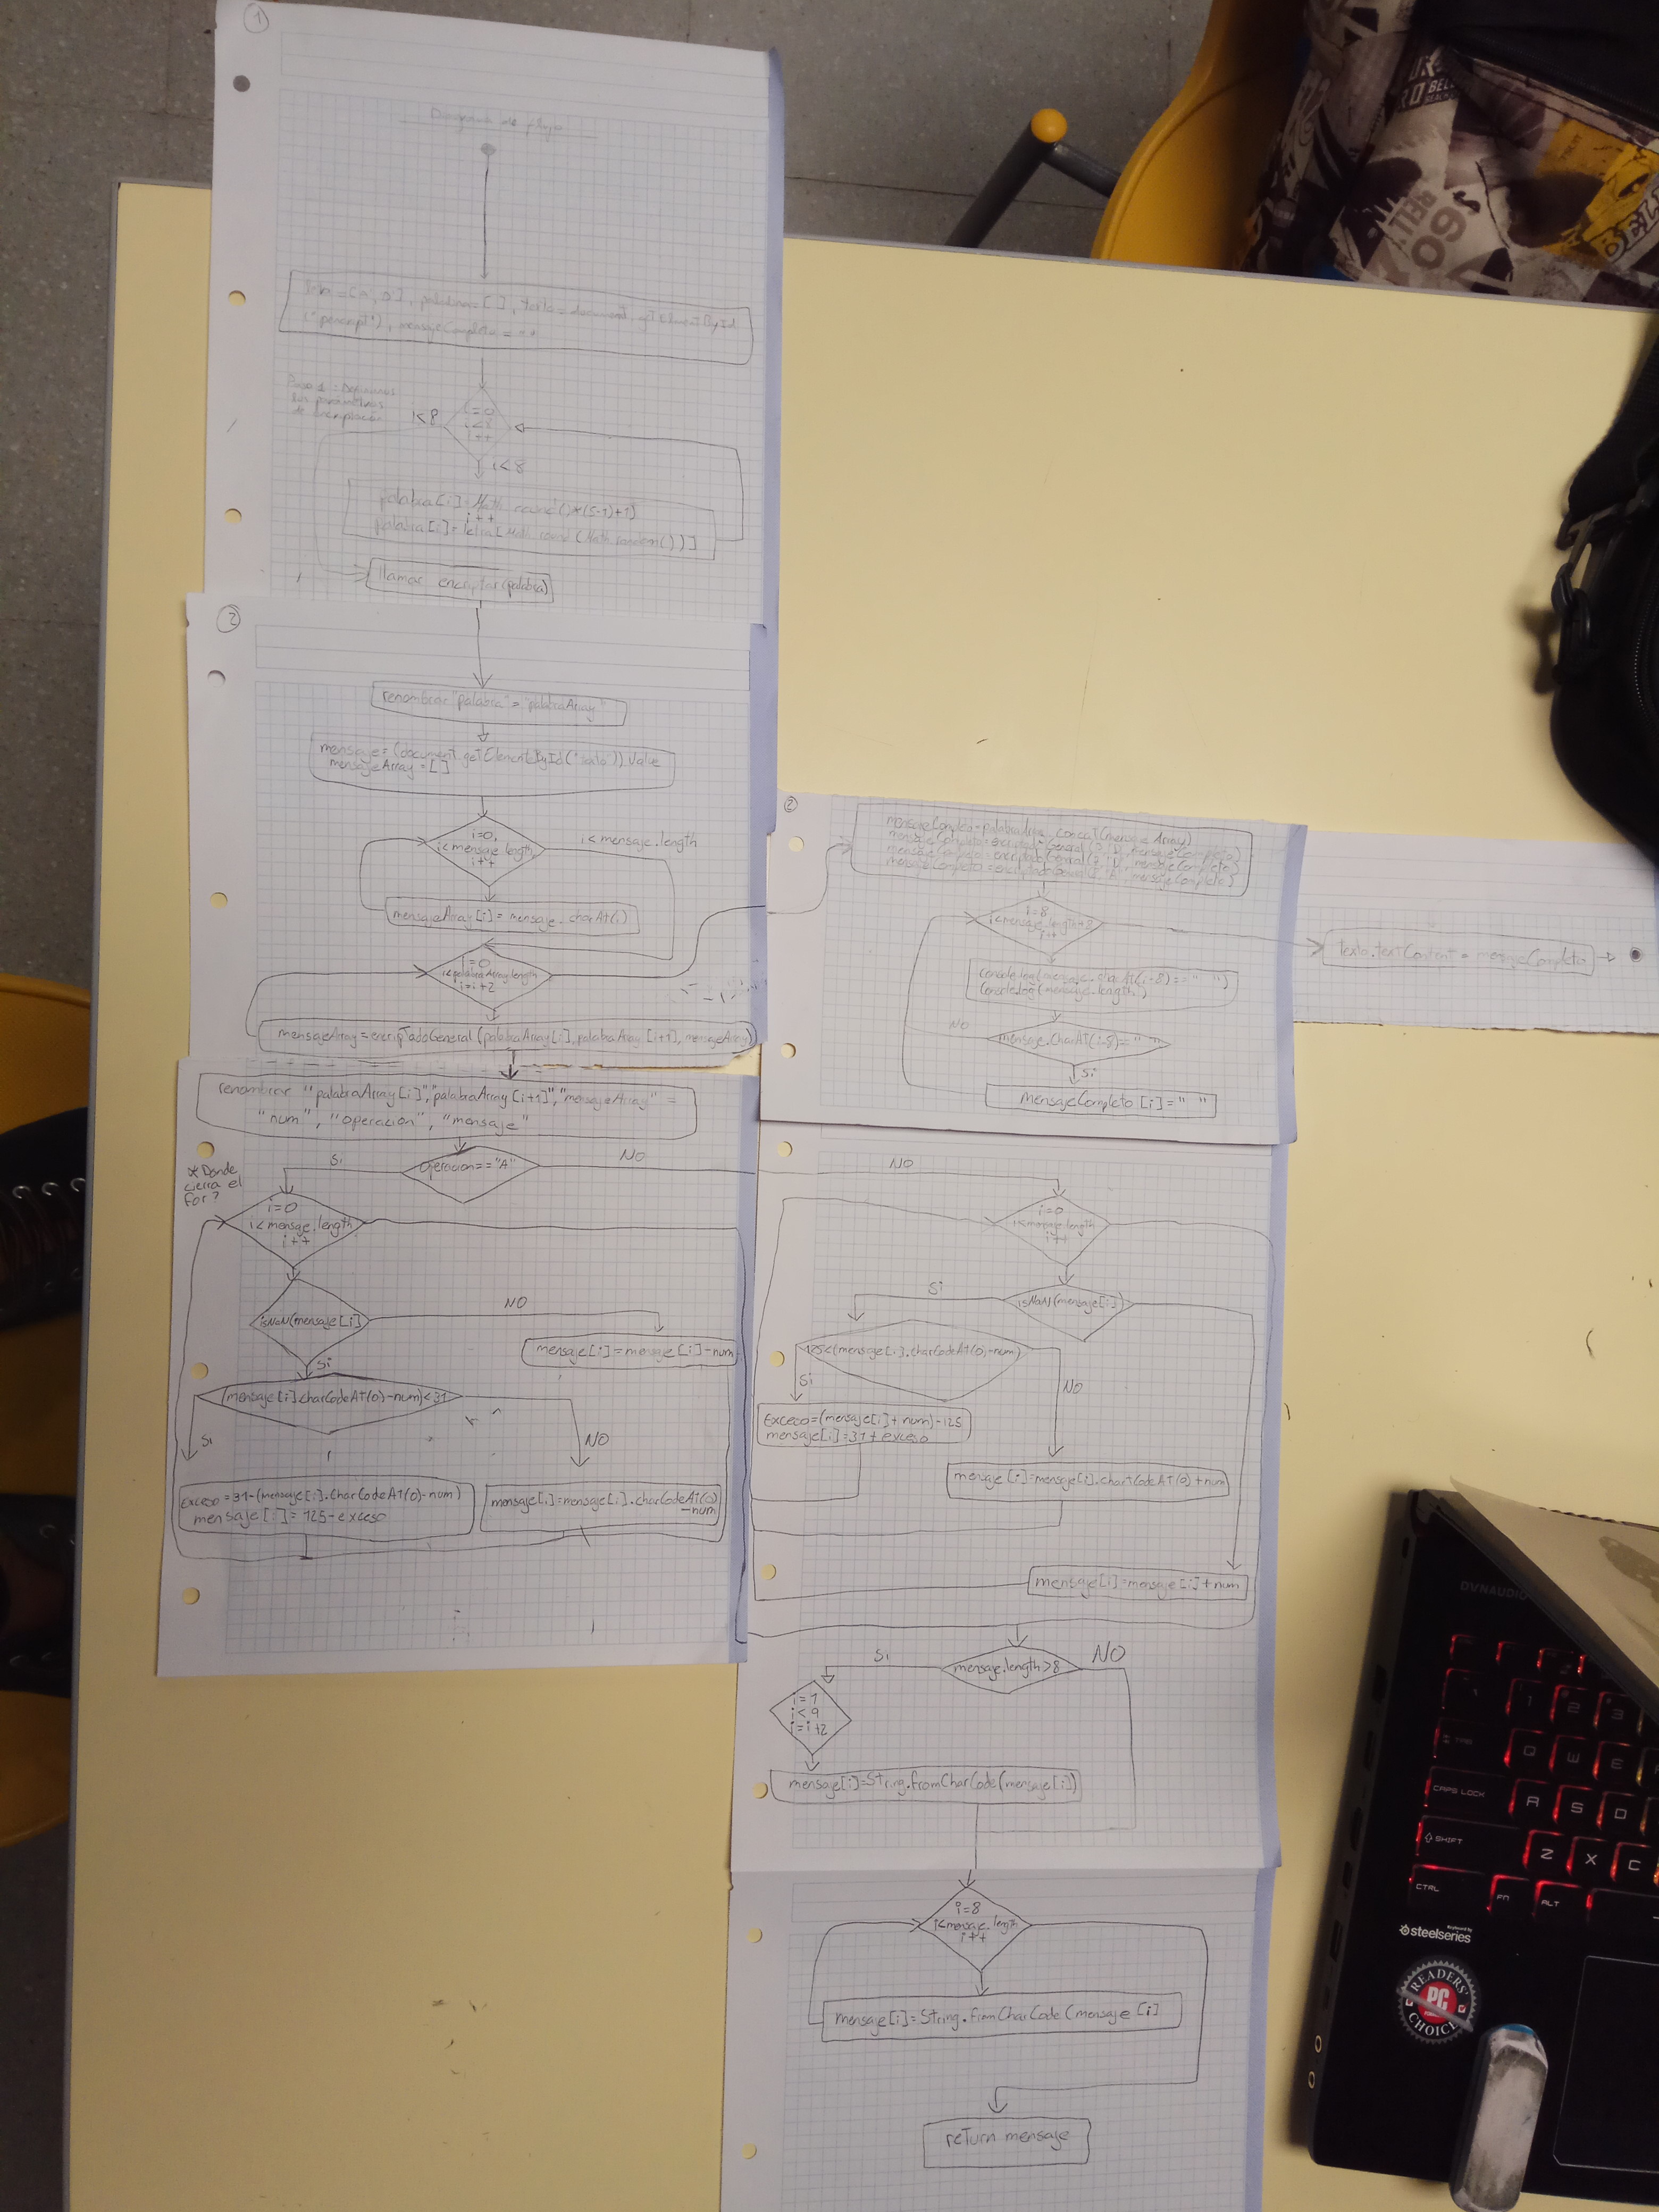 ①
Diagrama de flujo
document.getElementById
mensajeCompleto = ""
Paso 1: Definimos
los parámetros
de encriptación
i=0
i++
i<8
i<8
palabra[i]=Math.round()*(5-1)+1)
i++
palabra[i]=letra[Math.round(Math.random())]
llamar encriptar(palabra)
②
renombrar "palabra" = "palabraArray"
mensaje=(document.getElementById("texto")).value
mensajeArray=[]
i=0,
i<mensaje.length,
i++
i<mensaje.length
mensajeArray[i]=mensaje.charAt(i)
i=0
i<palabraArray.length
i=i+2
mensajeArray=encriptadoGeneral(palabraArray[i],palabraArray[i+1],mensajeArray)
renombrar "palabraArray[i]","palabraArray[i+1]","mensajeArray" =
"num", "operacion", "mensaje"
operacion=="A"
Si
NO
*Donde
cierra el
for?
i=0
i<mensaje.length
i++
isNaN(mensaje[i]
NO
mensaje[i]=mensaje[i]-num
Si
(mensaje[i].charCodeAt(0)-num)<31
Si
NO
Exceso=31-(mensaje[i].charCodeAt(0)-num)
mensaje[i]=125-exceso
mensaje[i]=mensaje[i].charCodeAt(0)
-num
②
mensajeCompleto=palabraArray.concat(mensajeArray)
mensajeCompleto=encriptadoGeneral(
mensajeCompleto=encriptadoGeneral(
mensajeCompleto=encriptadoGeneral(
i=8
i<mensaje.length+8
i++
texto.textContent = mensajeCompleto
console.log(mensaje.charAt(i-8)==" ")
console.log(mensaje.length)
NO
mensaje.charAt(i-8)==" "
Si
mensajeCompleto[i]=" "
NO
i=0
i<mensaje.length
i++
Si
isNaN(mensaje[i])
125<(mensaje[i].charCodeAt(0)-num)
Si
NO
Exceso=(mensaje[i]+num)-125
mensaje[i]=31+exceso
mensaje[i]=mensaje[i].chartCodeAt(0)+num
mensaje[i]=mensaje[i]+num
Si
mensaje.length>8
NO
i=1
i<9
i=i+2
mensaje[i]=String.fromCharCode(mensaje[i])
i=8
i<mensaje.length
i++
mensaje[i]=String.fromCharCode(mensaje[i]
return mensaje
DYNAUDIO
1
2
3
TAB
Q
W
E
CAPS LOCK
A
S
D
SHIFT
Z
X
C
CTRL
FN
ALT
Keyboard by
steelseries
READERS'
PC
CHOICE